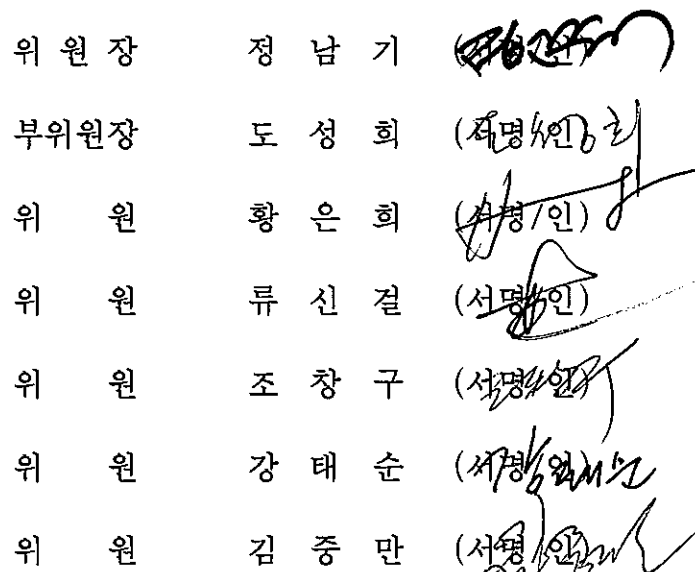 위 원 장 정 남 기 (서명/인)
부위원장 도 성 희 (서명/인)
위 원 황 은 희 (서명/인)
위 원 류 신 걸 (서명/인)
위 원 조 창 구 (서명/인)
위 원 강 태 순 (서명/인)
위 원 김 중 만 (서명/인)